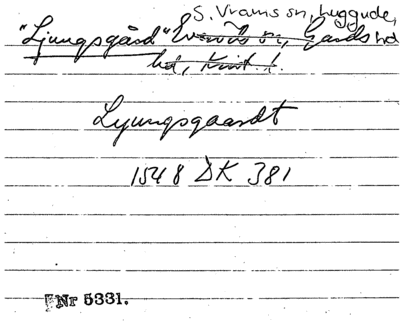 S. Vrams sn, Luggude,
"Ljungsgård" sn, Gärds hd
hd, Krist l.
Lyungsgaardt
1548 DK 381
Nr 5331.